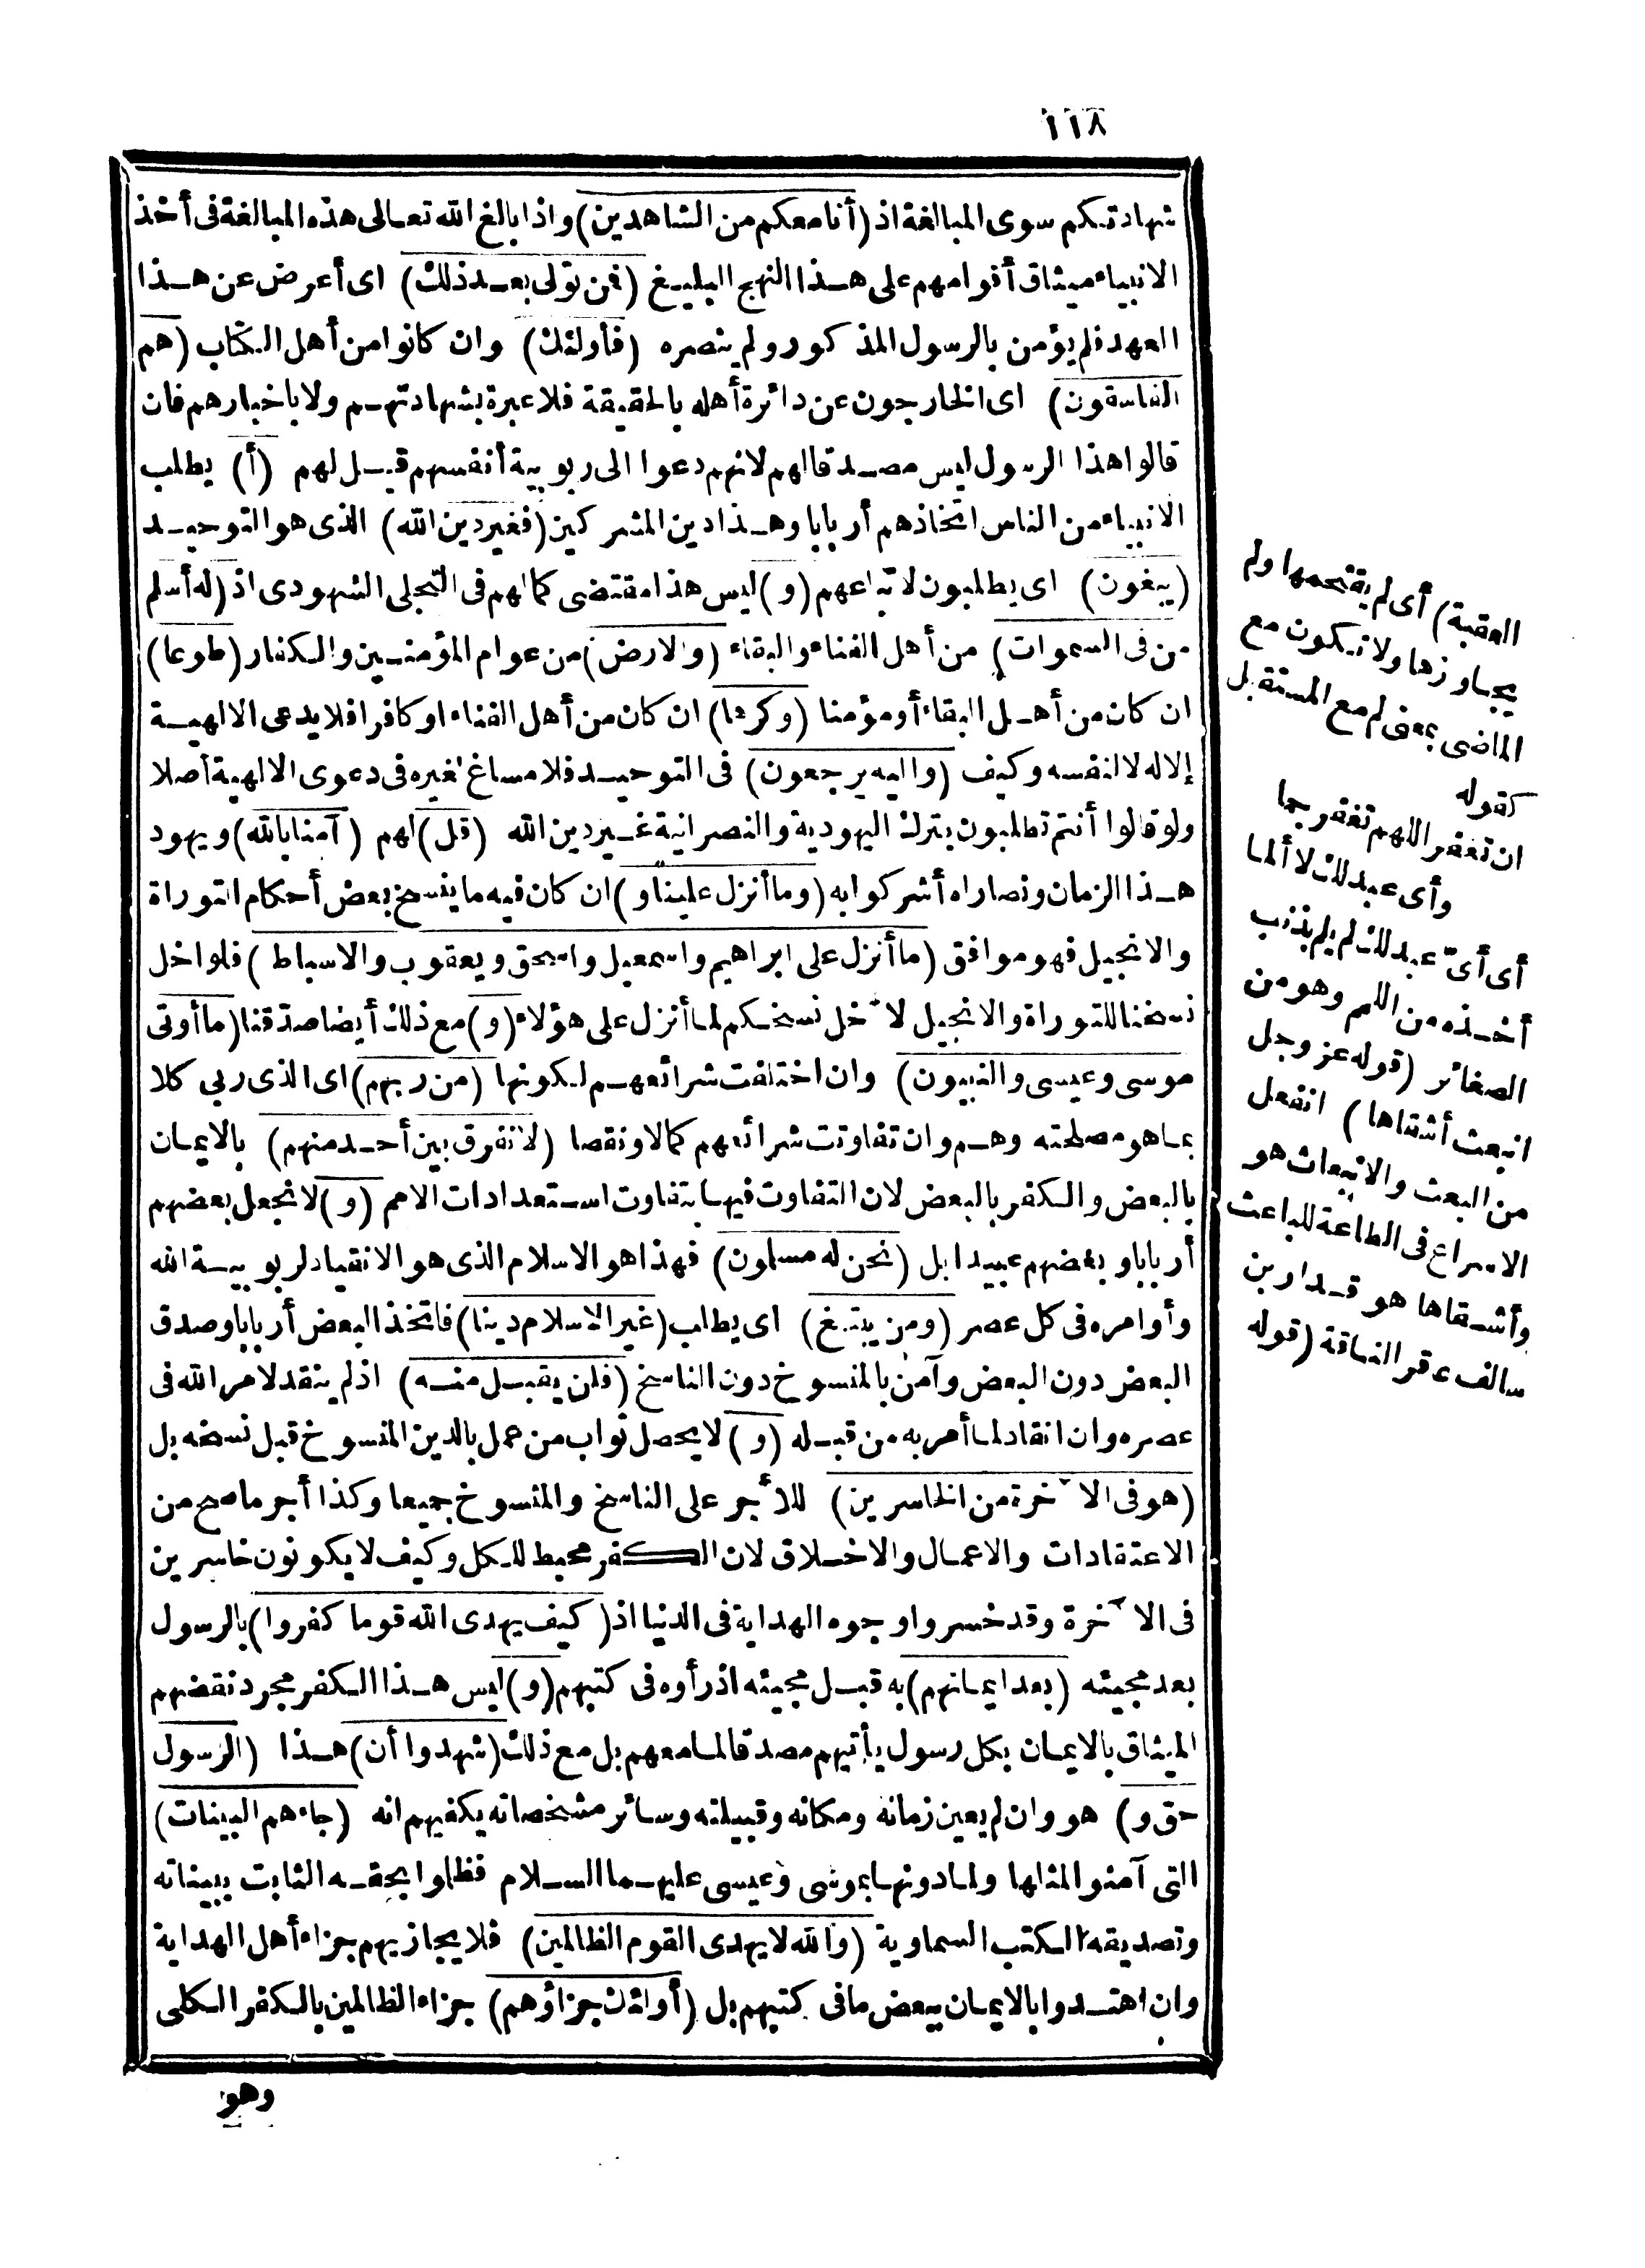 ١١٨
شهادتكم سوى المبالغة اذ (أنا معكم من الشاهدين) واذا بالغ الله تعالى هذه المبالغة فى أخذ
الانبياء ميثاق أقوامهم على هذا النهج البليغ (فمن تولى بعد ذلك) اى أعرض عن هذا
العهد فلم يؤمن بالرسول المذكور ولم ينصره (فأولئك) وان كانوا من أهل الكتاب (هم
الفاسقون) اى الخارجون عن دائرة أهله بالحقيقة فلا عبرة بشهادتهم ولا باخبارهم فان
قالوا هذا الرسول ليس مصدقا لهم لانهم دعوا الى ربوبية أنفسهم قيل لهم (أ) يطلب
الانبياء من الناس اتخاذهم أربابا وهذا دين المشركين (فغير دين الله) الذى هو التوحيد
(يبغون) اى يطلبون لاتباعهم (و) ليس هذا مقتضى كمالهم فى التجلى الشهودى اذ (له أسلم
من فى السموات) من أهل الفناء والبقاء (والارض) من عوام المؤمنين والكفار (طوعا)
ان كان من أهل البقاء أو مؤمنا (وكرها) ان كان من أهل الفناء او كافرا فلا يدعى الالهية
إلا له لا لنفسه وكيف (واليه يرجعون) فى التوحيد فلا مساغ لغيره فى دعوى الالهية أصلا
ولو قالوا أنتم تطلبون بترك اليهودية والنصرانية غير دين الله (قل) لهم (آمنا بالله) ويهود
هذا الزمان ونصاراه أشركوا به (وما أنزل علينا و) ان كان فيه ما ينسخ بعض أحكام التوراة
والانجيل فهو موافق (ما أنزل على ابراهيم واسمعيل واسحق ويعقوب والاسباط) فلو اخل
نسخنا للتوراة والانجيل لأخل نسخكم لما أنزل على هؤلاء (و) مع ذلك أيضا صدقنا (ما أوتى
موسى وعيسى والنبيون) وان اختلفت شرائعهم لكونها (من ربهم) اى الذى ربى كلا
بما هو مصلحته وهم وان تفاوتت شرائعهم كمالا ونقصا (لا نفرق بين أحد منهم) بالايمان
بالبعض والكفر بالبعض لان التفاوت فيها بتفاوت استعدادات الامم (و) لا نجعل بعضهم
أربابا وبعضهم عبيدا بل (نحن له مسلمون) فهذا هو الاسلام الذى هو الانقياد لربوبية الله
وأوامره فى كل عصر (ومن يبتغ) اى يطلب (غير الاسلام دينا) فاتخذ البعض أربابا وصدق
البعض دون البعض وآمن بالمنسوخ دون الناسخ (فلن يقبل منه) اذ لم ينقد لامر الله فى
عصره وان انقاد لما أمر به من قبله (و) لا يحصل ثواب من عمل بالدين المنسوخ قبل نسخه بل
(هو فى الآخرة من الخاسرين) للأجر على الناسخ والمنسوخ جميعا وكذا أجر ما صح من
الاعتقادات والاعمال والاخلاق لان الكفر محيط للكل وكيف لا يكونون خاسرين
فى الآخرة وقد خسروا وجوه الهداية فى الدنيا اذ (كيف يهدى الله قوما كفروا) بالرسول
بعد مجيئه (بعد ايمانهم) به قبل مجيئه اذ رأوه فى كتبهم (و) ليس هذا الكفر مجرد نقضهم
الميثاق بالايمان بكل رسول يأتيهم مصدقا لما معهم بل مع ذلك (شهدوا أن) هذا (الرسول
حق و) هو وان لم يعين زمانه ومكانه وقبيلته وسائر مشخصاته يكفيهم انه (جاءهم البينات)
التى آمنوا لمثلها ولما دونها بموسى وعيسى عليهما السلام فظلموا بحقه الثابت ببيناته
وتصديقه الكتب السماوية (والله لا يهدى القوم الظالمين) فلا يجازيهم جزاء أهل الهداية
وان اهتدوا بالايمان ببعض ما فى كتبهم بل (أولئك جزاؤهم) جزاء الظالمين بالكفر الكلى
وهو
العقبة) أى لم يقتحمها ولم
يجاوزها ولا تكون مع
الماضى بمعنى لم مع المستقبل
كقوله
ان تغفر اللهم تغفر جما
وأى عبد لك لا ألما
أى أىّ عبد لك لم يلم بذنب
أخذه من اللمم وهو من
الصغائر (قوله عز وجل
انبعث أشقاها) انفعل
من البعث والانبعاث هو
الاسراع فى الطاعة للباعث
وأشقاها هو قدار بن
سالف عقر الناقة (قوله